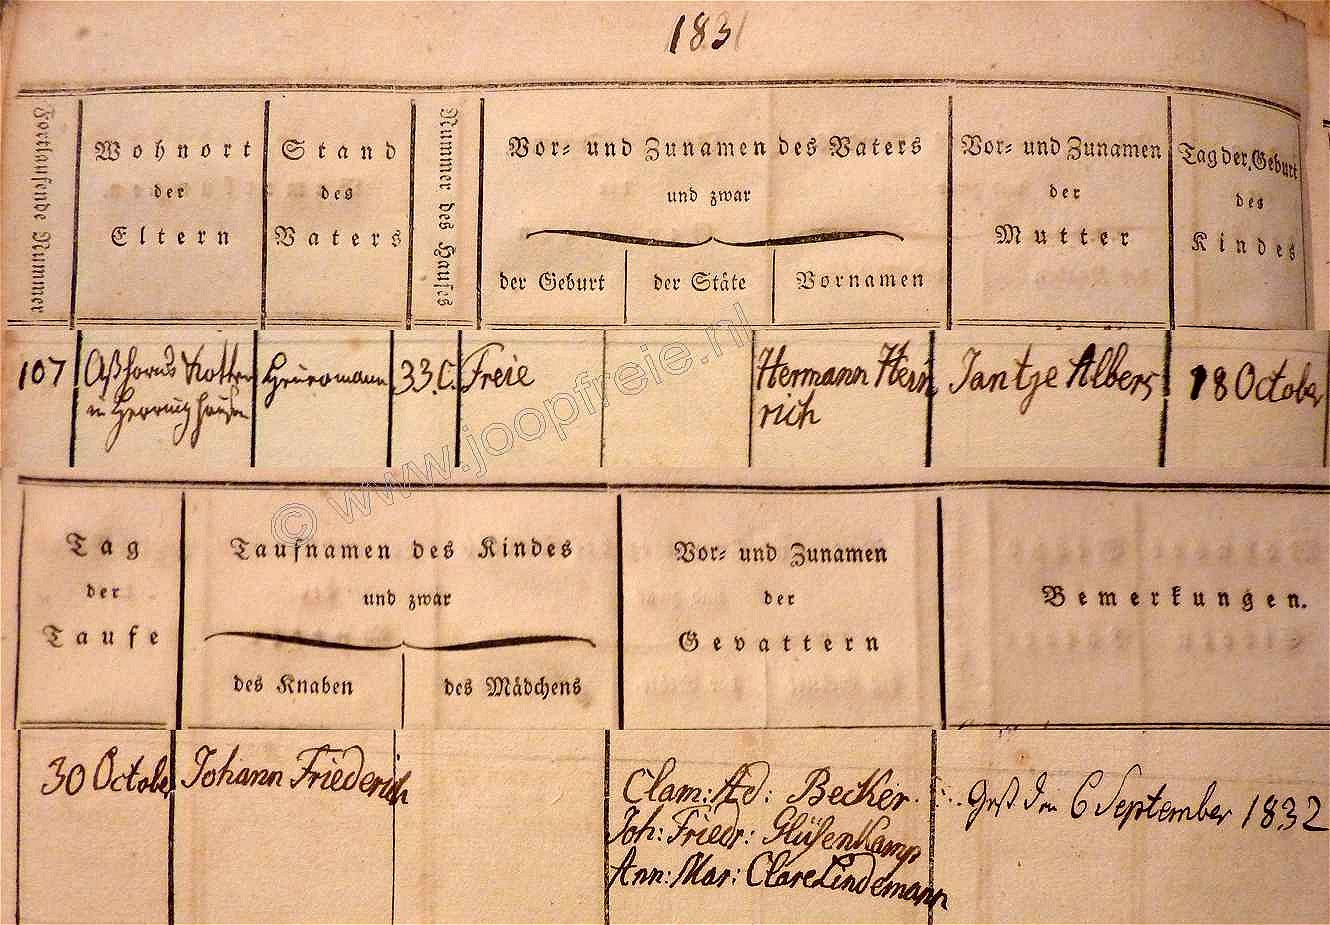 1831
Fortlaufende Nummer
Wohnort
der
Eltern
Stand
des
Vaters
Nummer des Hauses
Vor- und Zunamen des Vaters
und zwar
der Geburt
der Stäte
Vornamen
Vor- und Zunamen
der
Mutter
Tag der Geburt
des
Kindes
107
Aßhorns Kotten
in Herringhausen
Heuermann
33.C.
Freie
Hermann Hein
rich
Jantje Albers
18 October
© www.joopfreie.nl
Tag
der
Taufe
Taufnamen des Kindes
und zwar
des Knaben
des Mädchens
Vor- und Zunamen
der
Gevattern
Bemerkungen.
30 October
Johann Friederich
Clam: Ad: Becker
Joh: Friedr: Glüsenkamp
Ann: Mar: Clare Lindemann
Gest den 6 September 1832